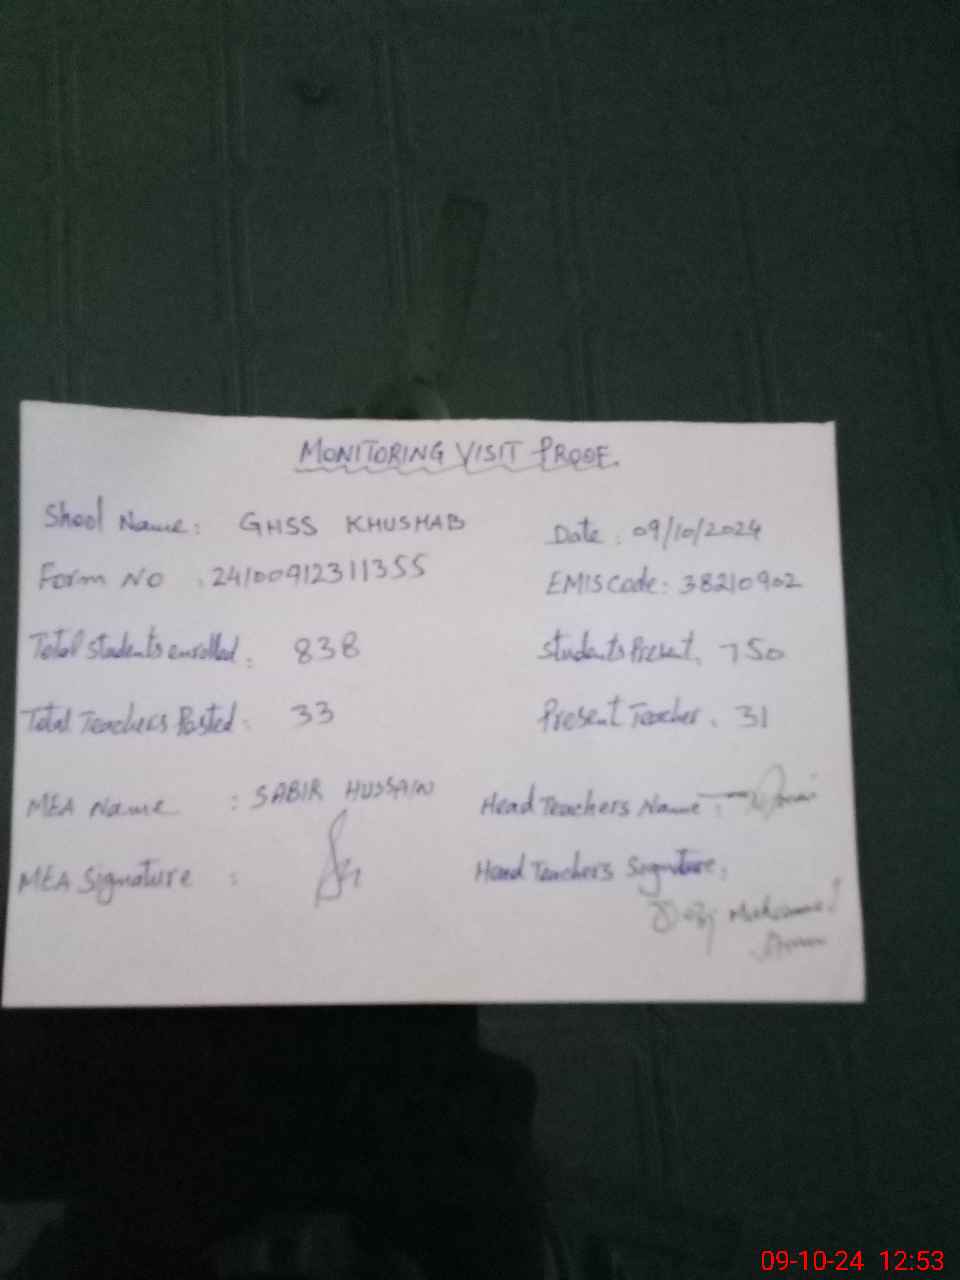 MONITORING VISIT PROOF.
Shool Name: GHSS KHUSHAB Date: 09/10/2024
Form NO : 24100912311355 EMIS Code: 38210902
Total Students enrolled: 838 Students Present: 750
Total Teachers Posted: 33 Present Teacher: 31
MEA Name : SABIR HUSSAIN Head Teachers Name:
MEA Signature : Head Teachers Signature:
09-10-24 12:53